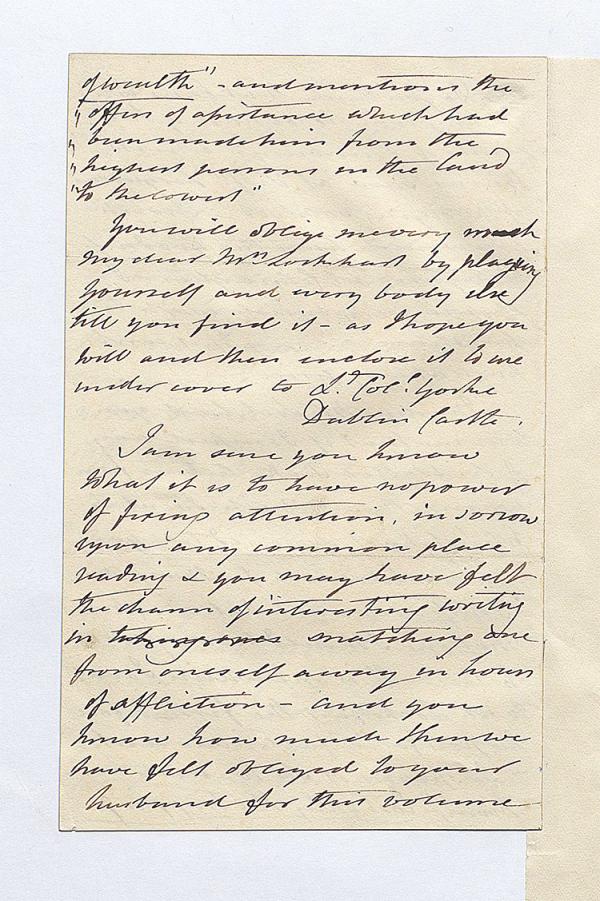 of wealth" - and mentioned the
"offers of assistance which had
"been made him from the
"highest persons in the land
"to the lowest"
You will oblige me very much
my dear Mrs Lockhart by plaguing
yourself and every body else
till you find it - as I hope you
will and then enclose it to me
under cover to Lt. Col. Yorke
Dublin Castle.
I am sure you know
what it is to have no power
of fixing attention, in sorrow
upon any common place
reading & you may have felt
the charm of interesting writing
in snatching one
from oneself away in hours
of affliction - and you
know how much then we
have felt obliged to your
husband for this volume